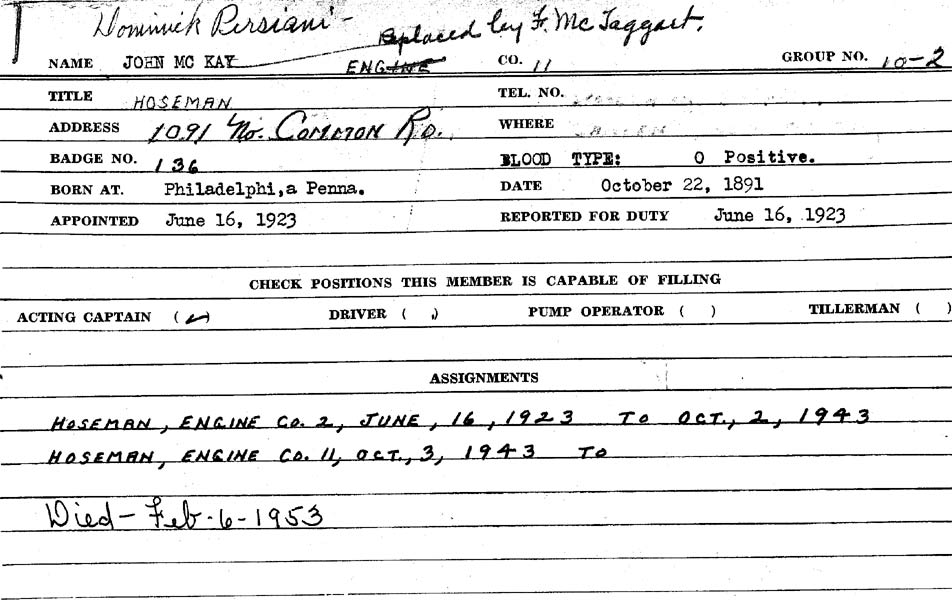 Dominick Persiani - Replaced by F. McTaggart.
NAME JOHN MC KAY ENGINE CO. 11 GROUP NO. 10-2
TITLE HOSEMAN TEL. NO.
ADDRESS 1091 No. COMMON RD. WHERE
BADGE NO. 136 BLOOD TYPE: O Positive.
BORN AT. Philadelphi,a Penna. DATE October 22, 1891
APPOINTED June 16, 1923 REPORTED FOR DUTY June 16, 1923
CHECK POSITIONS THIS MEMBER IS CAPABLE OF FILLING
ACTING CAPTAIN (✓) DRIVER ( ) PUMP OPERATOR ( ) TILLERMAN ( )
ASSIGNMENTS
HOSEMAN, ENGINE CO. 2, JUNE, 16, 1923 TO OCT., 2, 1943
HOSEMAN, ENGINE CO. 11, OCT., 3, 1943 TO
Died - Feb-6-1953